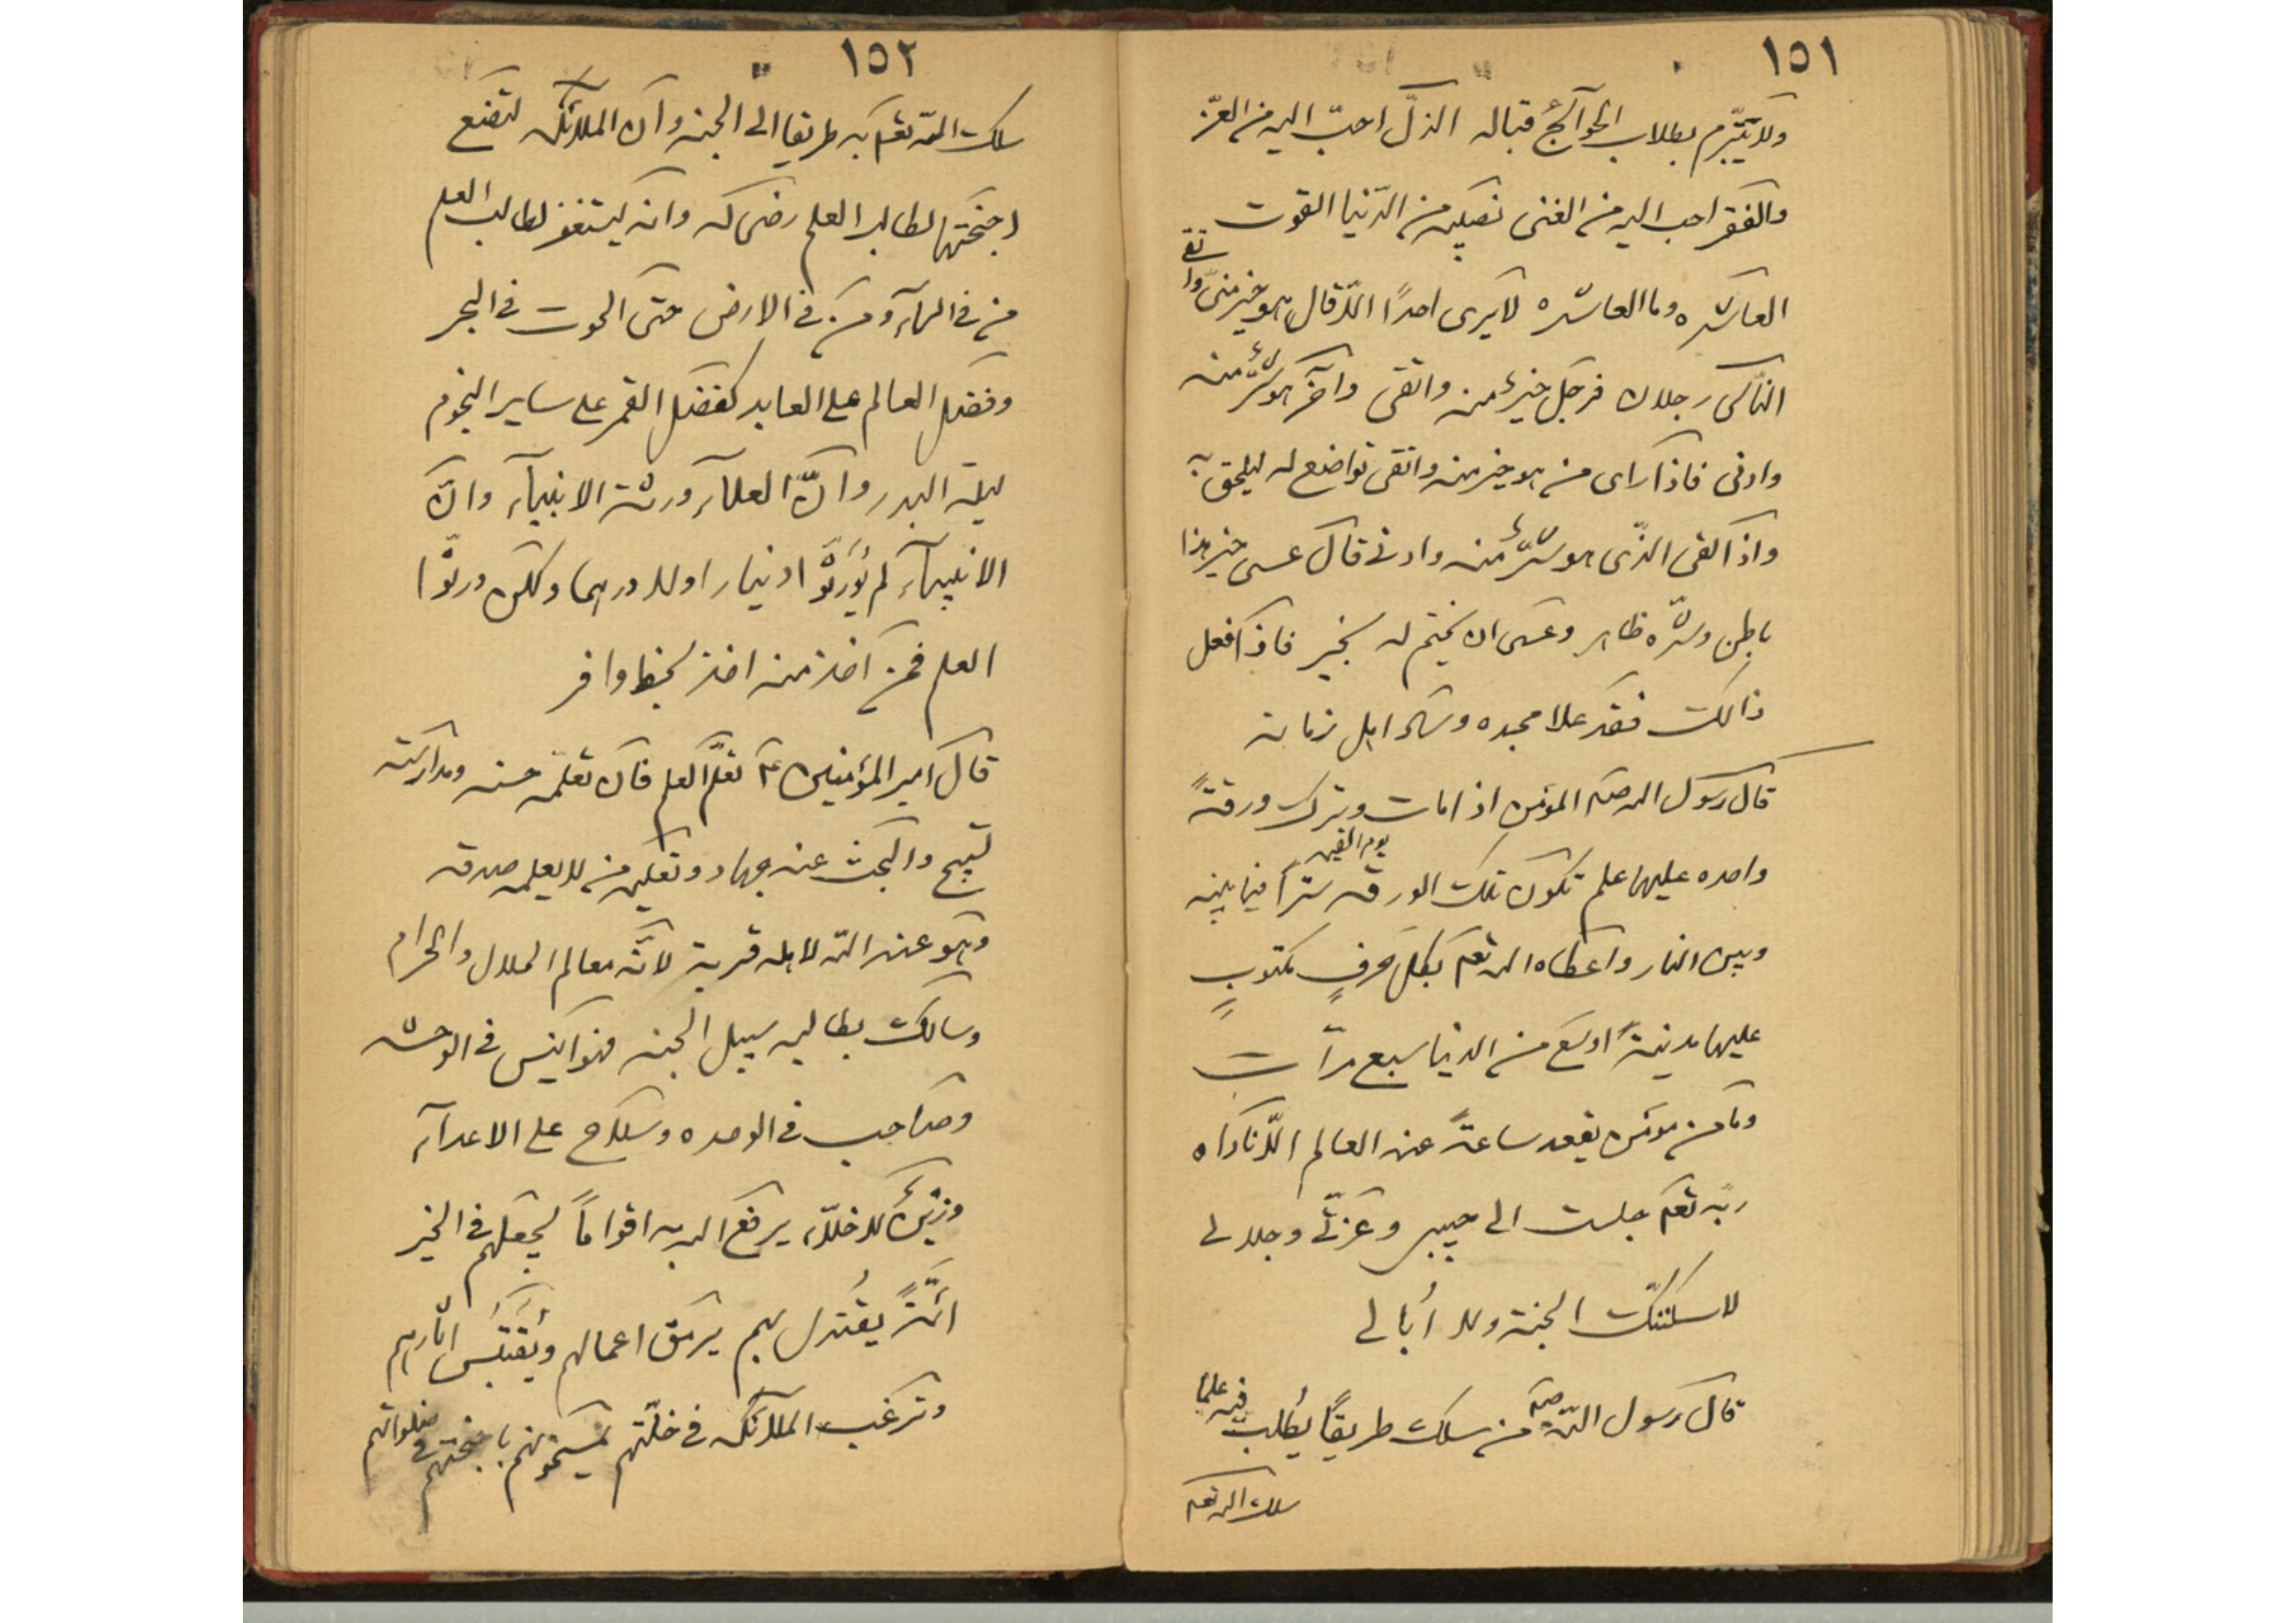 ١٥١
ولا يتبرّم بطلاب الحوآئج قباله الذلّ احبّ اليه من العزّ
والفقر احب اليه من الغنى نصيبه من الدّنيا القوت
العاشره وما العاشره لا يرى احدًا الّا قال هو خير منّى واتقى
النّاس رجلان فرجل خيرٌ منه واتقى وآخر هو شرٌّ منه
وادنى فاذا راى من هو خير منه واتقى تواضع له ليلحق به
واذا لقى الذّى هو شرٌّ منه وادنى قال عسى خير هذا
باطن وشرّه ظاهر وعسى ان يختم له بخير فاذا فعل
ذالك فقد علا مجده وساد اهل زمانه
قال رسول اللہ صلعم المؤمن اذا مات وترك ورقةً
واحده عليها علم تكون تلك الورقه يوم القيمه سترًا فيما بينه
وبين النار واعطاه اللہ تعم بكل حرفٍ مكتوبٍ
عليها مدينةً اوسع من الدنيا سبع مرّات
وما من مؤمن يقعد ساعةً عند العالم الّا ناداه
ربّه تعم جلست الى حبيبى وعزّتى وجلالى
لاسكننّك الجنة ولا اُبالى
قال رسول اللّه صلعم من سلك طريقًا يُطلب فيه علمًا
سلك اللہ تعم
١٥٢
سلك اللّه تعم به طريقا الى الجنه وان الملائكه لتضع
اجنحتها لطالب العلم رضى له وانه ليستغفر لطالب العلم
من فى السمآء ومن فى الارض حتى الحوت فى البحر
وفضل العالم على العابد كفضل القمر على ساير النجوم
ليلة البدر وانّ العلمآء ورثة الانبيآء وانّ
الانبيآء لم يُوَرِّثُوا دينارا ولا درهما ولكن ورثّوا
العلم فمن اخذ منه اخذ بحظ وافر
قال امير المؤمنين ع تعلّم العلم فان تعلّمه حسنه ومدارسته
تسبيح والبحث عنه جهاد وتعليمه من لا يعلمه صدقه
وهو عند اللّه لاهله قربة لانّه معالم الحلال والحرام
وسالك بطالبه سبيل الجنه وهو انيس فى الوحشه
وصاحب فى الوحده وسلاح على الاعدآء
وزينُ الاخلّاء يرفع اللہ به اقوامًا يجعلهم فى الخير
ائمّةً يُقتدى بهم يرمق اعمالهم ويُقتَبَس اثارهم
وترغب الملائكه فى خلّتهم يمسحونهم باجنحتهم فى صلواتهم